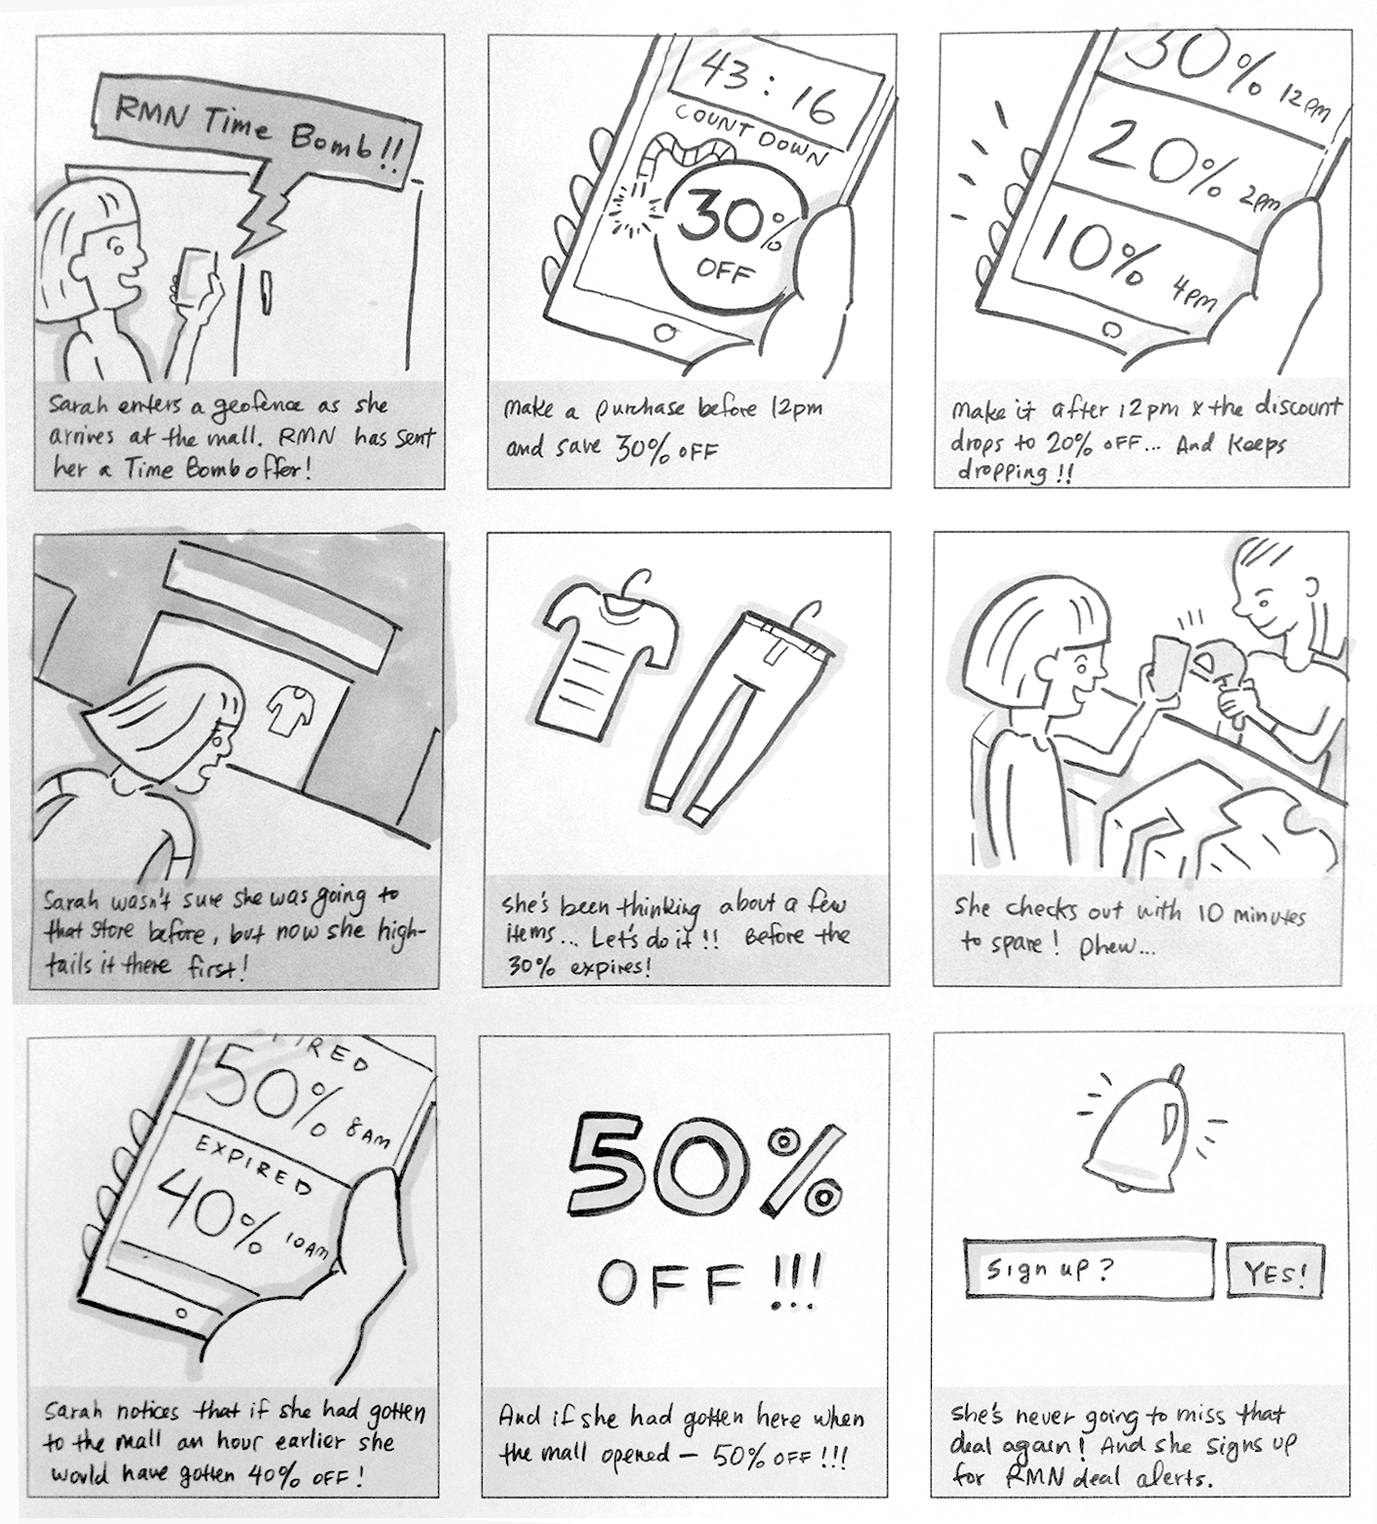 RMN Time Bomb!!
Sarah enters a geofence as she
arrives at the mall. RMN has sent
her a Time Bomb offer!
43:16
COUNT DOWN
30%
OFF
Make a purchase before 12pm
and save 30% OFF
30% 12pm
20% 2pm
10% 4pm
Make it after 12pm & the discount
drops to 20% OFF... And keeps
dropping!!
Sarah wasn't sure she was going to
that store before, but now she high-
tails it there first!
She's been thinking about a few
items... Let's do it!! Before the
30% expires!
She checks out with 10 minutes
to spare! Phew...
PIRED
50% 8AM
EXPIRED
40% 10AM
Sarah notices that if she had gotten
to the mall an hour earlier she
would have gotten 40% OFF!
50%
OFF!!!
And if she had gotten here when
the mall opened — 50% OFF!!!
Sign up? YES!
She's never going to miss that
deal again! And she signs up
for RMN deal alerts.